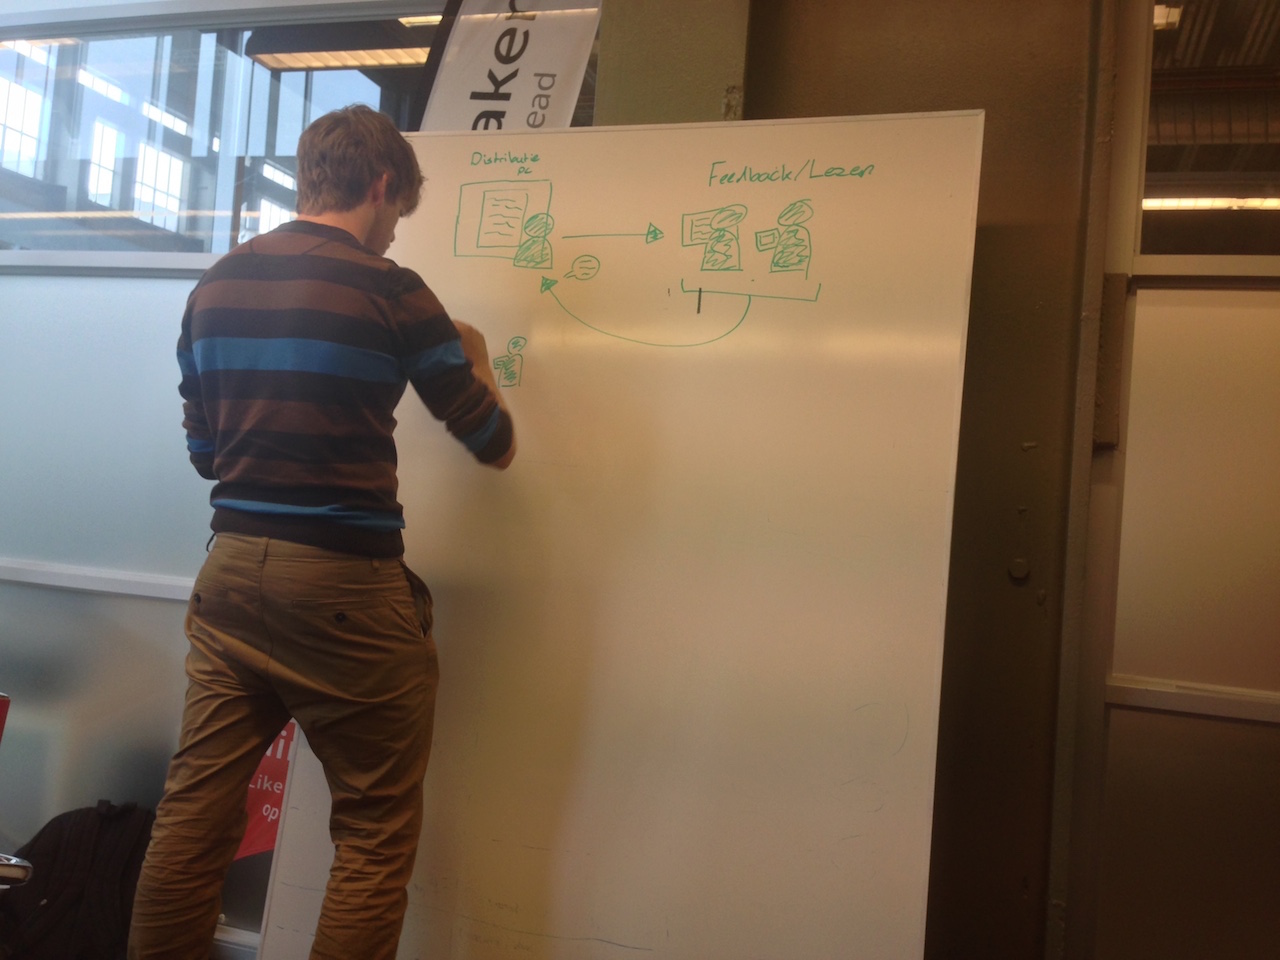 aker
ead
Distributie
pc
Feedback/Lezen
Like
op